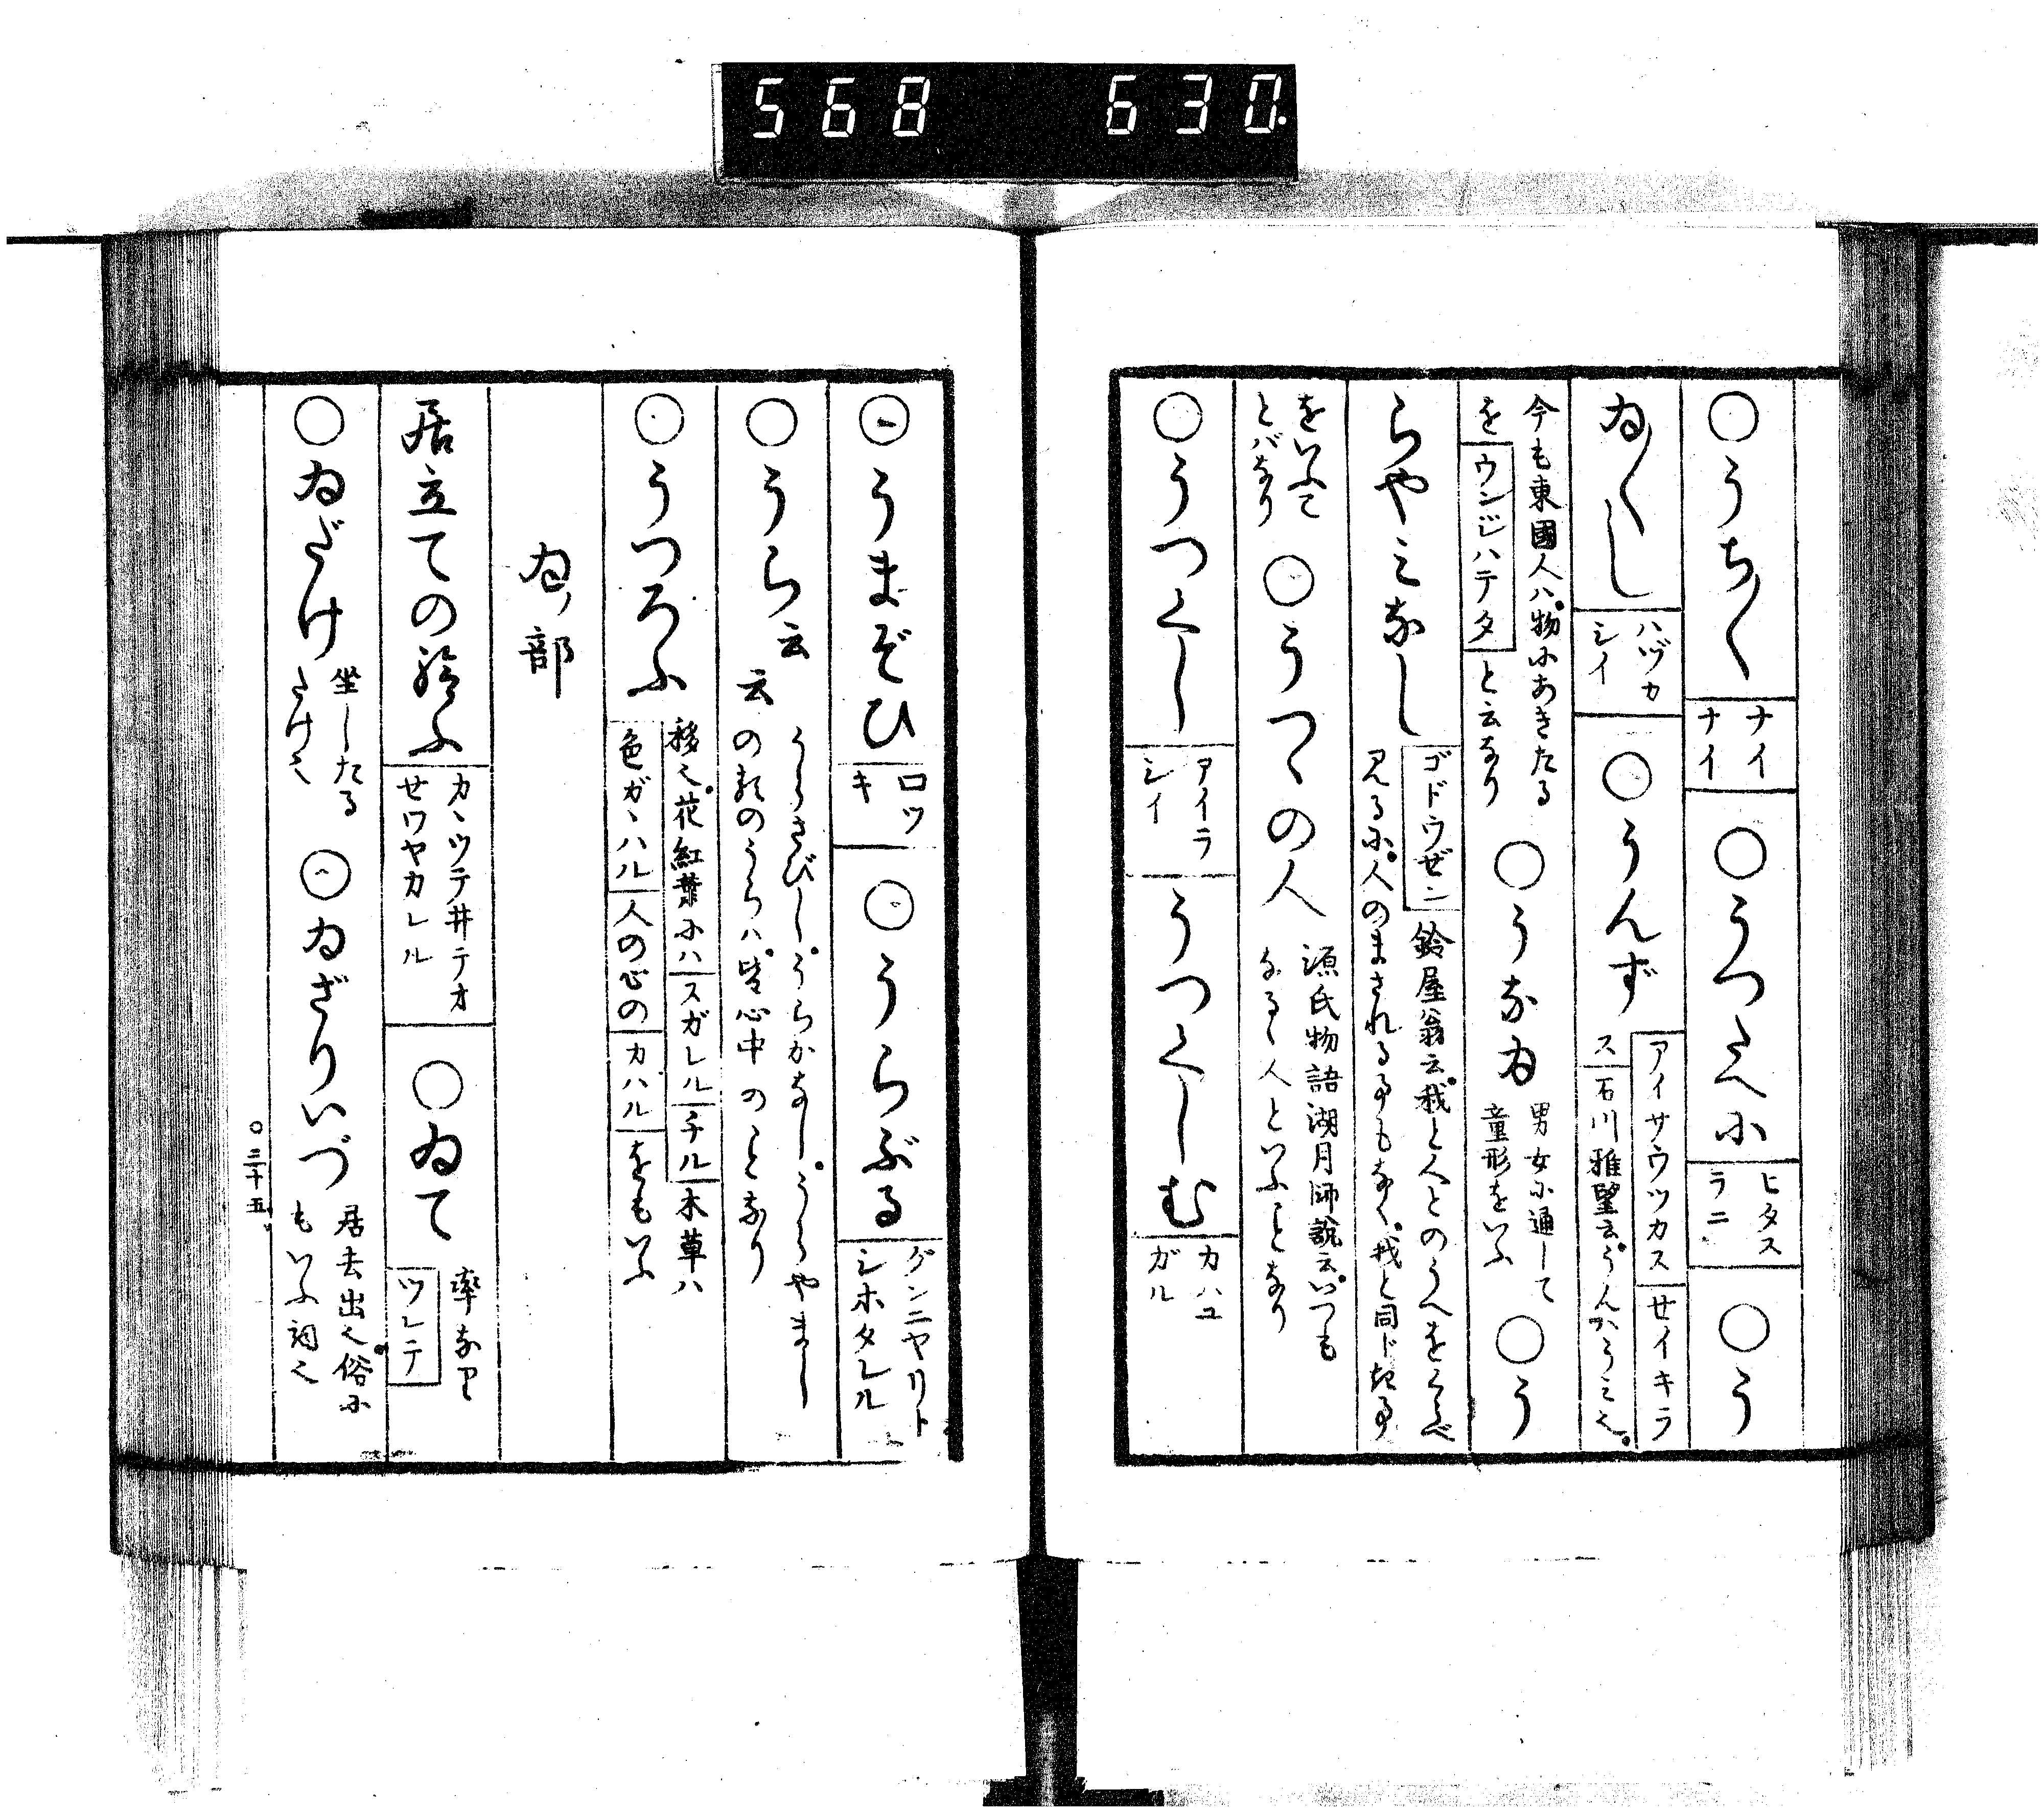 568 630.
○うち〳〵 ナイナイ ○うつたへに ヒタスラニ ○う
ゐ〳〵し ハヅカシイ ○うんず アイサウツカス セイキラス 石川雅望云うんハうみ也
今も東國人ハ物にあきたるを ウンジハテタ と云なり ○うなゐ 男女に通して童形をいふ ○う
らやみなし ゴドウゼン 鈴屋翁云我と人とのうへをくらべ見るに人のまされる事もなく我と同ド
をいふことバなり ○うつゝの人 源氏物語湖月師説云いつもなるゝ人といふことなり
○うつくし アイラシイ うつくしむ カハユガル
○うまぞひ ロツキ ○うらぶる グンニヤリト シホタレル
○うら云云 うらさびしうらかなしうらやましの類のうらハ皆心中のことなり
○うつろふ 移也花紅葉にハ スガレル チル 木草ハ 色ガヽハル 人の心の カハル をもいふ
ゐノ部
居立ての給ふ カヽツテ井テオセワヤカレル ○ゐて 率なり ツレテ
○ゐだけ 坐したるたけ也 ○ゐざりいづ 居去出也俗にもいふ詞也
○三十五